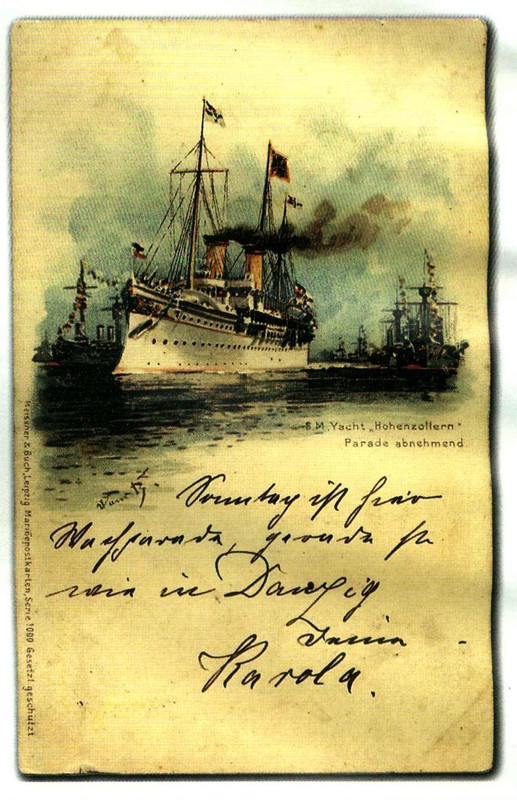 S.M. Yacht „Hohenzollern"
Parade abnehmend
Sonntag ist hier
Wachparade, gerade so
wie in Danzig
Deine
Karola.
Meissner & Buch, Leipzig Marinepostkarten, Serie 1099 Gesetzl. geschützt